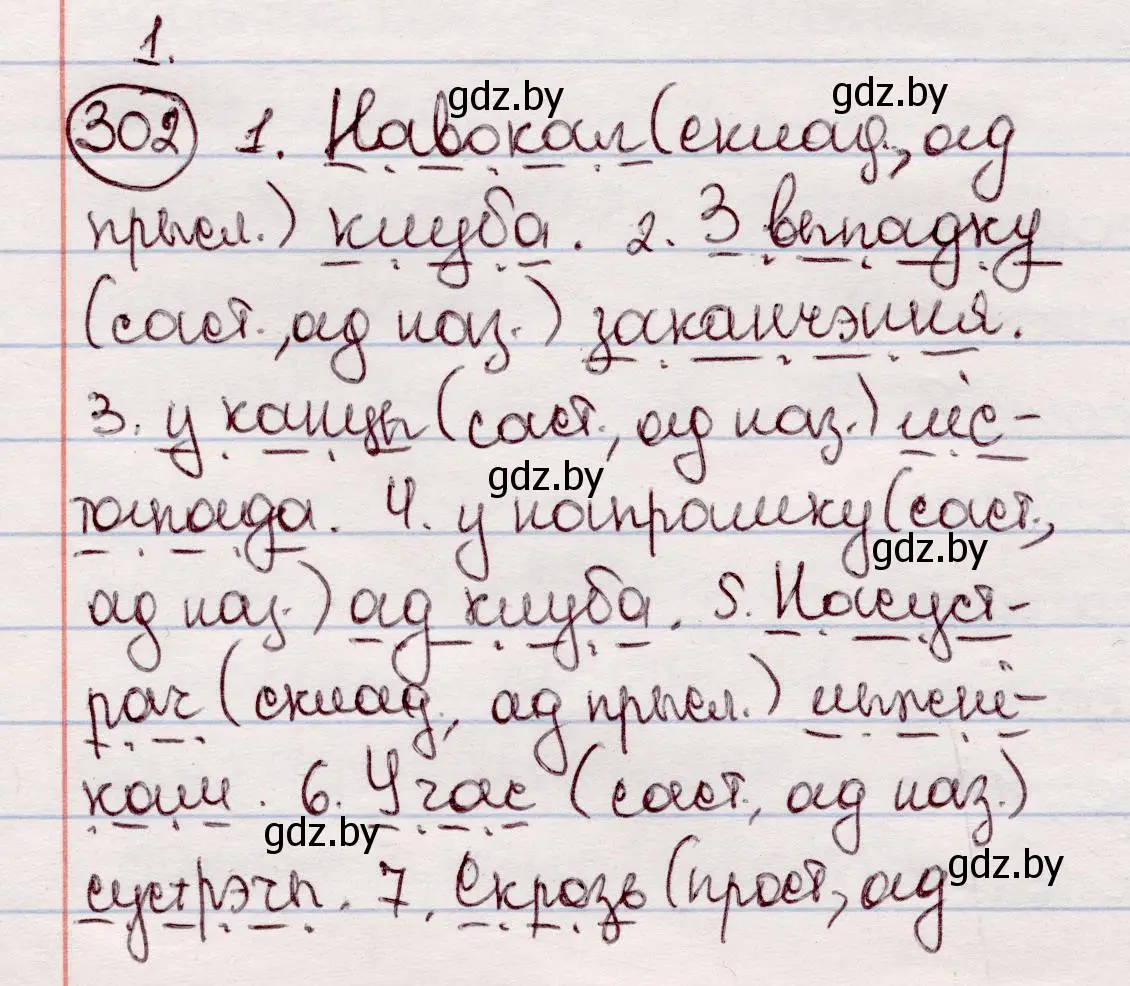 1.
302 1. Навокал (склад., ад
прысл.) клуба. 2. З выпадку
(саст., ад наз.) заканчэння.
3. у канцы (саст., ад наз.) ліс-
тапада. 4. у напрамку (саст.,
ад наз.) ад клуба. 5. Насуст-
рач (склад., ад прысл.) лыжні-
кам. 6. У час (саст., ад наз.)
сустрэчы. 7. Скрозь (прост., ад
gdz.by
gdz.by
gdz.by
gdz.by
gdz.by
gdz.by